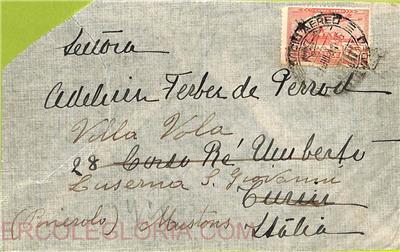 Señora
Adelina Ferber de Perrod
Villa Vola
28 Corso Ré Umberto
Luserna S. Giovanni
Turin
(Pinerolo)
Itália
ERCOLEGLORIA.COM